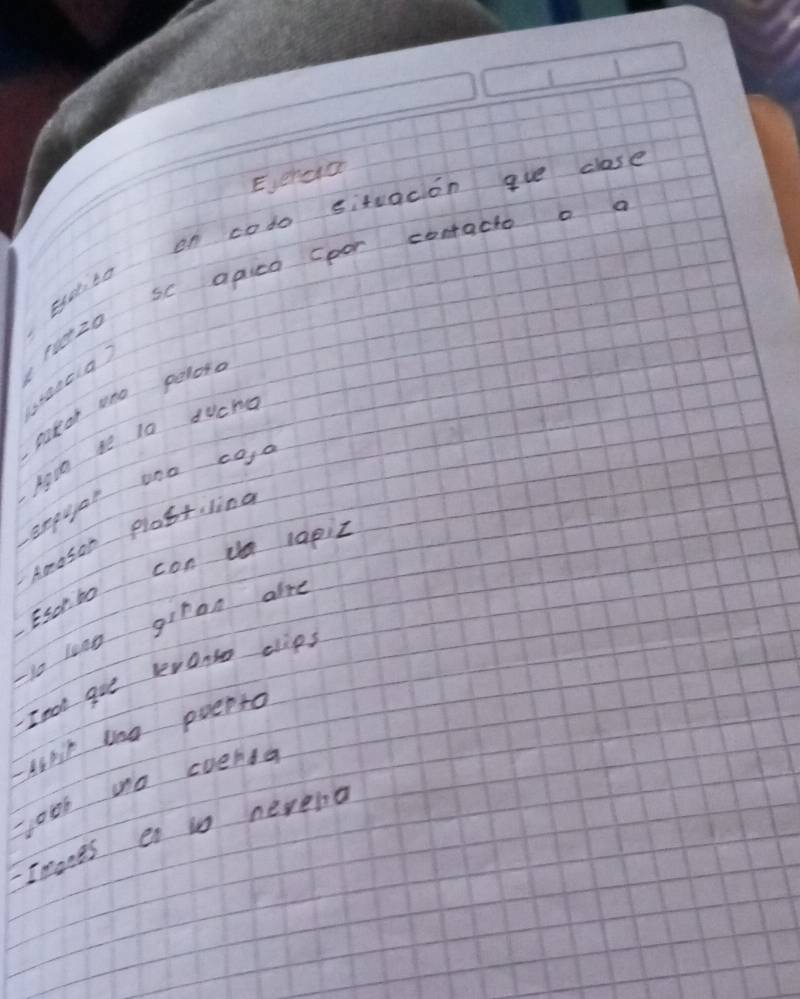 Ejercicio
Escriba en cada situación que clase
fuerza se aplica (por contacto o a
distancia)
- patear una pelota
- Agua de la ducha
- empujar una caja
- Amasar plastilina
- Escribo con un lapiz
- la luna giran
- Iman que levanta clips
- Abrir una puerta
- una cuerda
- Imanes en la nevera